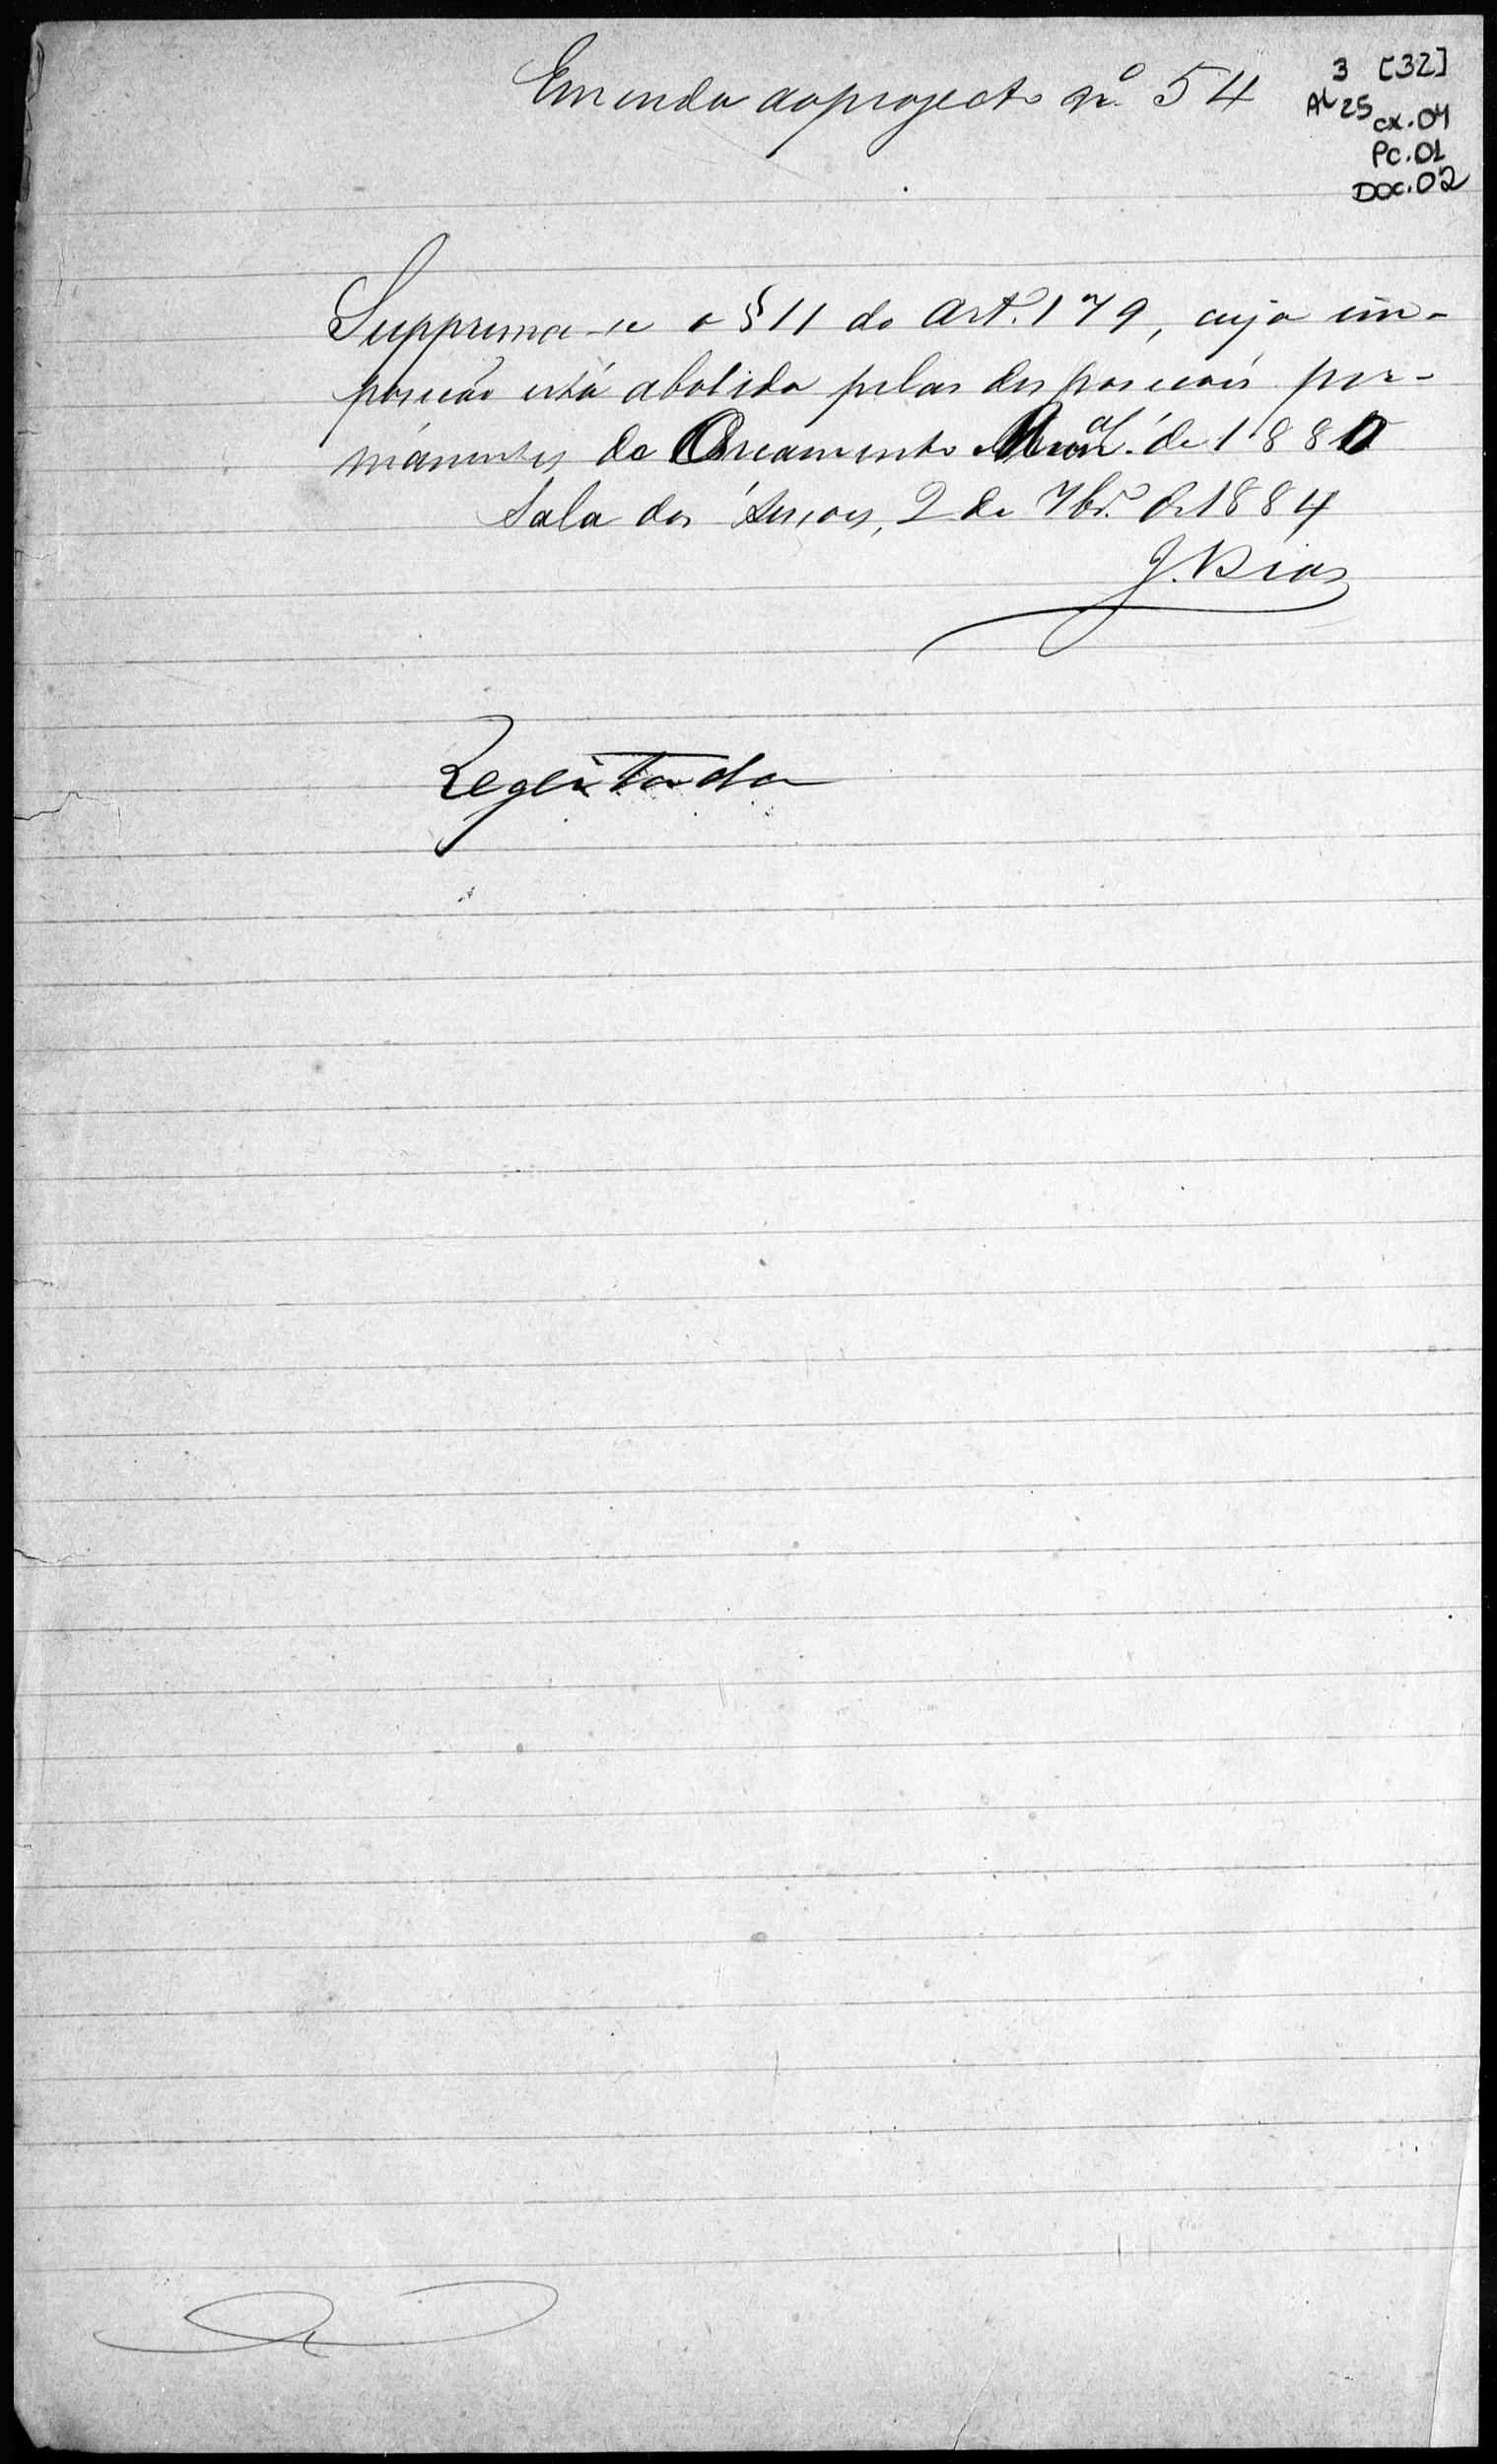 Emenda ao projecto nº 54
3 [32]
AL 25
cx.04
Pc.01
DOC.02
Supprima-se o § 11 do Art. 179, cuja im-
posição está abolida pelas disposições per-
manentes do Orçamento Mun.al de 1880
Sala das Sessoes, 2 de 7br.º de 1884
J. Dias
Regeitada